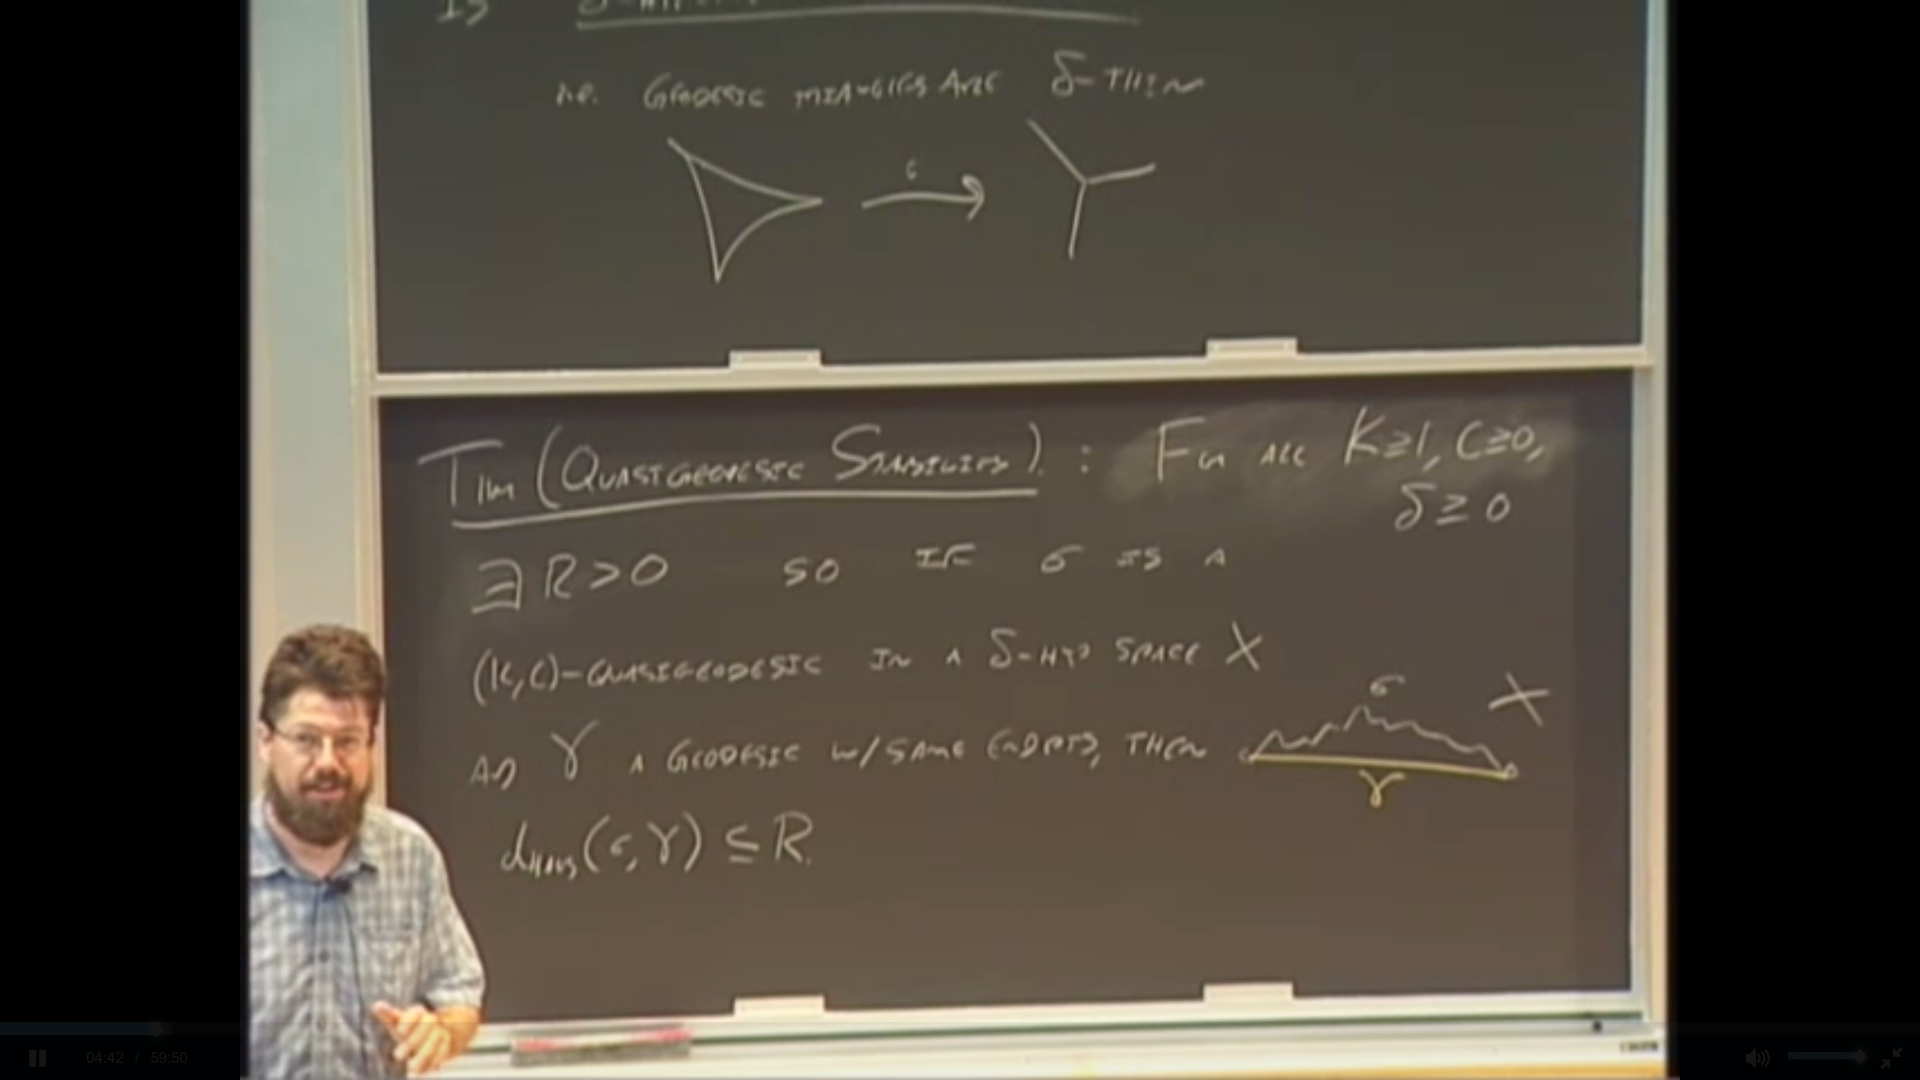 IS δ-HYP
i.e. GEODESIC TRIANGLES ARE δ-THIN
THM (QUASIGEODESIC STABILITY): FOR ALL K≥1, C≥0,
δ ≥ 0
∃ R>0 SO IF σ IS A
(K,C)-QUASIGEODESIC IN A δ-HYP SPACE X
AND γ A GEODESIC W/ SAME ENDPTS, THEN
σ X
γ
d_HAUS(σ,γ) ≤ R.
04:42 / 59:50